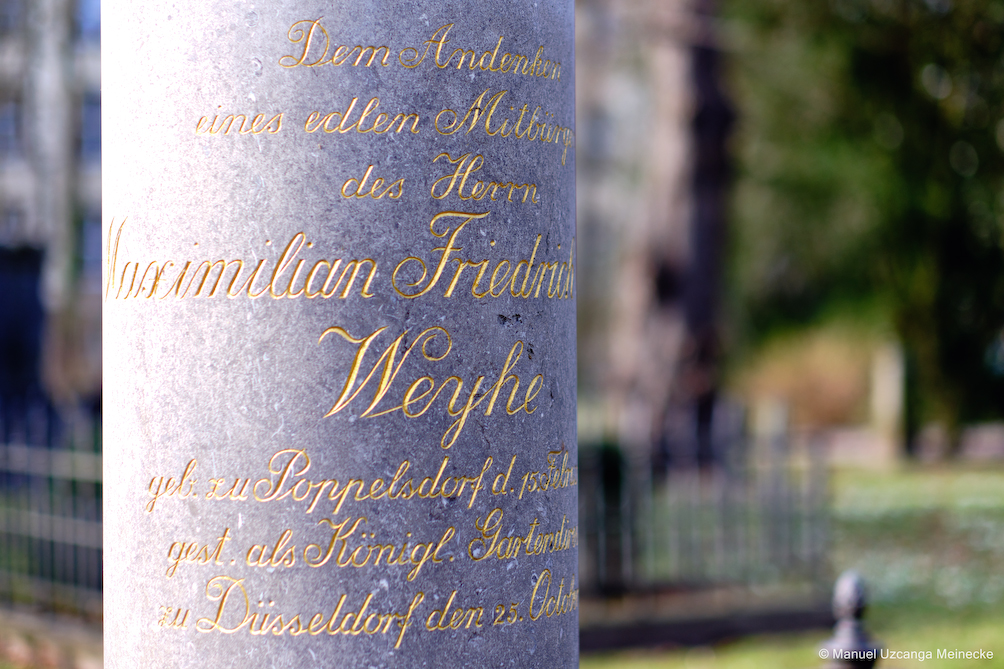 Dem Andenken
eines edlen Mitbürg
des Herrn
Maximilian Friedrich
Weyhe
geb. zu Poppelsdorf d. 15. Febr
gest. als Königl. Gartendir
zu Düsseldorf den 25. Octob
© Manuel Uzcanga Meinecke